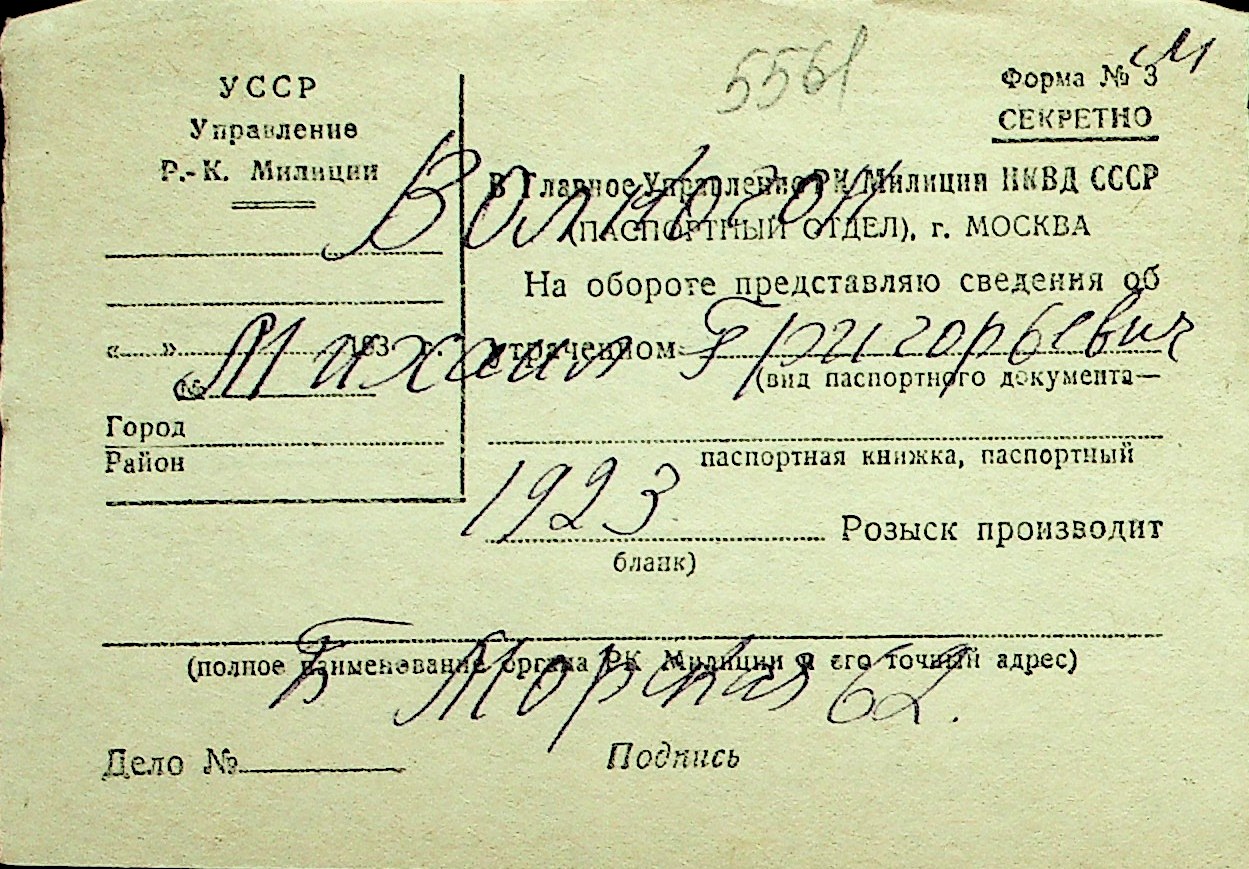 5561
м
УССР
Управление
Р.-К. Милиции
Форма № 3
СЕКРЕТНО
В Главное Управление РК Милиции НКВД СССР
(ПАСПОРТНЫЙ ОТДЕЛ), г. МОСКВА
На обороте представляю сведения об
утраченном
(вид паспортного документа—
паспортная книжка, паспортный
бланк)
Розыск производит
« » 193 г.
№
Город
Район
Михаил Григорьевич
1923
(полное наименование органа РК Милиции и его точный адрес)
Б Морская 62.
Дело №
Подпись